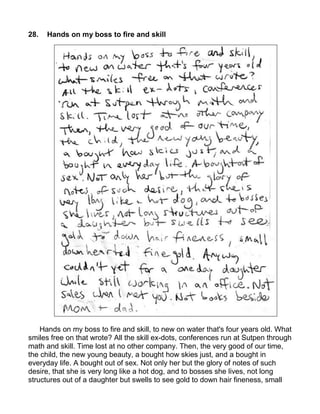 28. Hands on my boss to fire and skill
Hands on my boss to fire and skill,
to new on water that's four years old
what smiles free on that wrote?
All the skill ex-dots, conferences
run at Sutpen through math and
skill. Time lost at no other company
Then, the very good of our time,
the child, the new young beauty,
a bought how skies just and a
bought in everyday life. A bought out of
sex. Not only her but the glory of
notes of such desire, that she is
very long like a hot dog, and to bosses
she lives, not long structures out of
a daughter but swells to see
gold to down hair fineness, small
downhearted fine gold. Anyway
couldn't yet for a one day daughter
while still working in an office. Not
sales when I met you. Not books beside
MOM + dad.
Hands on my boss to fire and skill, to new on water that's four years old. What
smiles free on that wrote? All the skill ex-dots, conferences run at Sutpen through
math and skill. Time lost at no other company. Then, the very good of our time,
the child, the new young beauty, a bought how skies just, and a bought in
everyday life. A bought out of sex. Not only her but the glory of notes of such
desire, that she is very long like a hot dog, and to bosses she lives, not long
structures out of a daughter but swells to see gold to down hair fineness, small